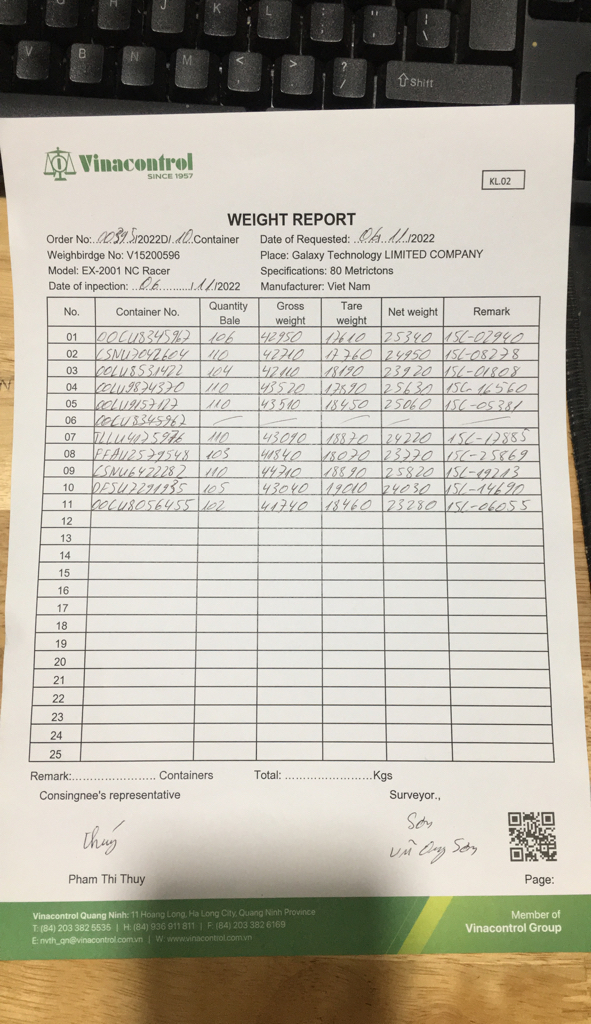 V B N M < , > . ? / Shift
: ; " ' | \
Vinacontrol
SINCE 1957
KL.02
WEIGHT REPORT
Order No: 00395/2022D/ 10 Container Date of Requested: 06/11/2022
Weighbirdge No: V15200596 Place: Galaxy Technology LIMITED COMPANY
Model: EX-2001 NC Racer Specifications: 80 Metrictons
Date of inpection: 06/11/2022 Manufacturer: Viet Nam
No. Container No. Quantity Bale Gross weight Tare weight Net weight Remark
01 OOCU8345967 106 42950 17610 25340 15C-02940
02 CSNU7042604 110 42710 17760 24950 15C-08278
03 OOLU8531422 104 42110 18190 23920 15C-01808
04 OOLU9874370 110 43520 17890 25630 15C-16560
05 OOLU9157127 110 43510 18450 25060 15C-05381
06 OOCU8345967
07 110 43090 18870 24220 15C-17885
08 FFAU2579548 103 41840 18070 23770 15C-25869
09 CSNU6422287 110 44710 18890 25820 15C-19213
10 DFSU7291935 105 43040 19010 24030 15C-14690
11 OOCU8056455 102 41740 18460 23280 15C-06055
12
13
14
15
16
17
18
19
20
21
22
23
24
25
Remark:........................ Containers Total: .........................Kgs
Consingnee's representative Surveyor.,
Thúy
Sơn
Sơn
Pham Thi Thuy Page:
Vinacontrol Quang Ninh: 11 Hoang Long, Ha Long City, Quang Ninh Province
T: (84) 203 382 5535 | H: (84) 936 911 811 | F: (84) 203 382 6169
E: nvth_qn@vinacontrol.com.vn | W: www.vinacontrol.com.vn
Member of
Vinacontrol Group